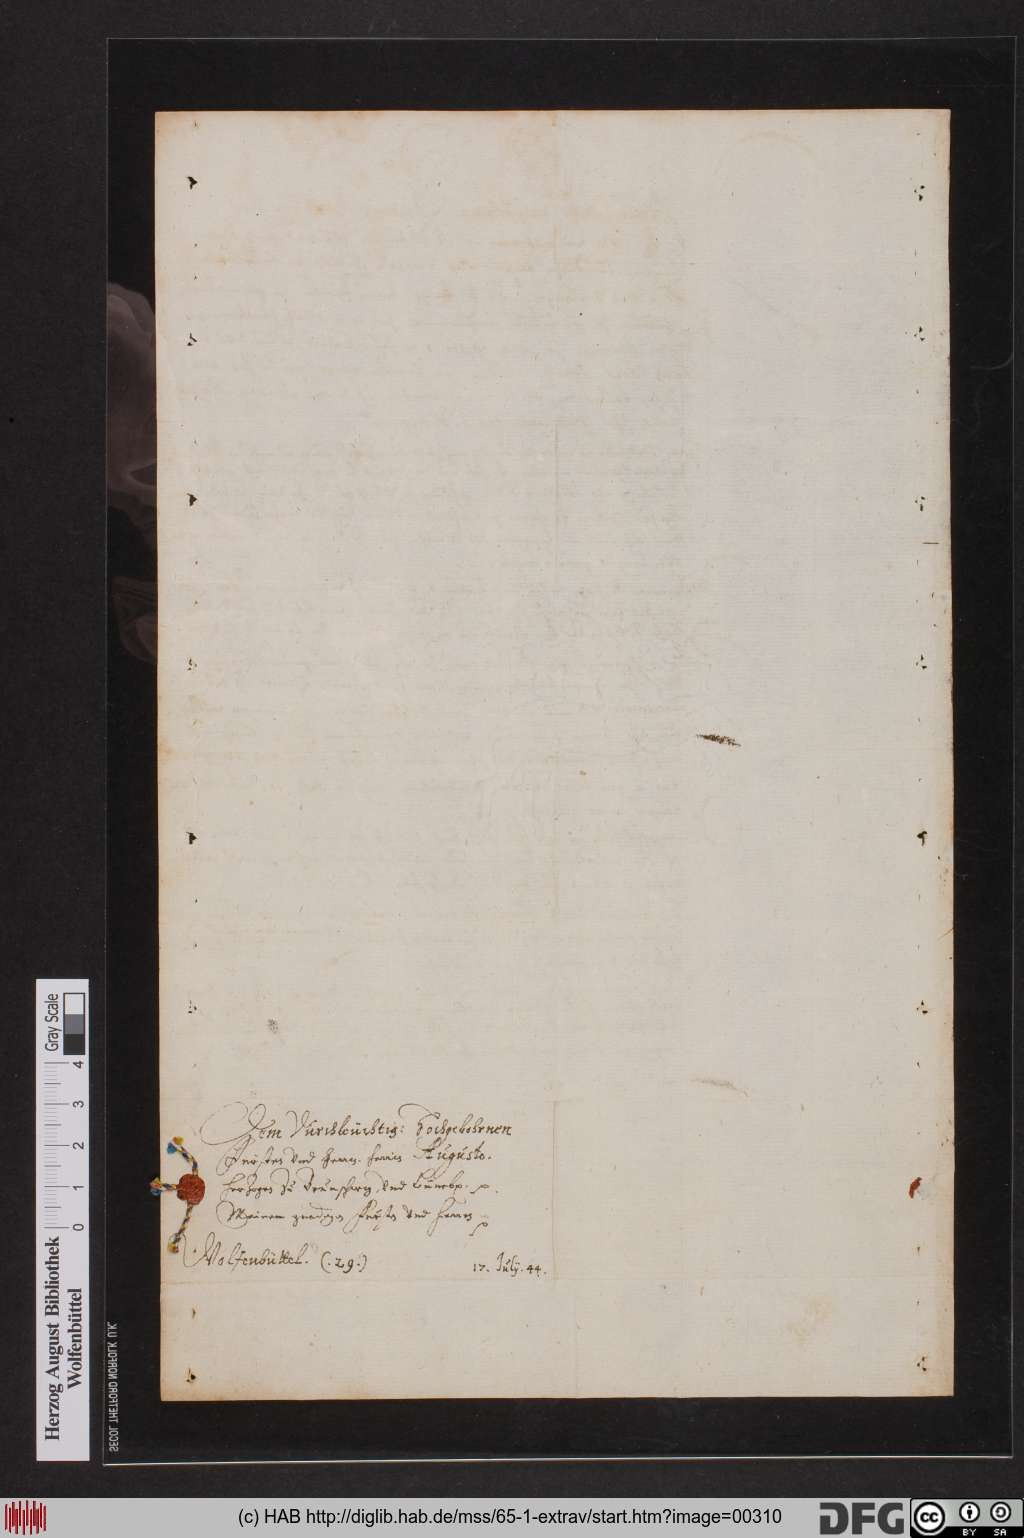 Dem Durchleuchtig: Hochgebohrnen
Fürsten und Herrn. Herrn Augusto.
Herzogen zu Braunschweig und Lüneb.
Meinem gnedigen Fürsten und Herrn
Wolfenbüttel. (.29.)
17. July. 44.
Gray Scale
0 1 2 3 4
Herzog August Bibliothek
Wolfenbüttel
SECOL THETFORD NORFOLK U.K.
(c) HAB http://diglib.hab.de/mss/65-1-extrav/start.htm?image=00310
DFG
cc BY SA